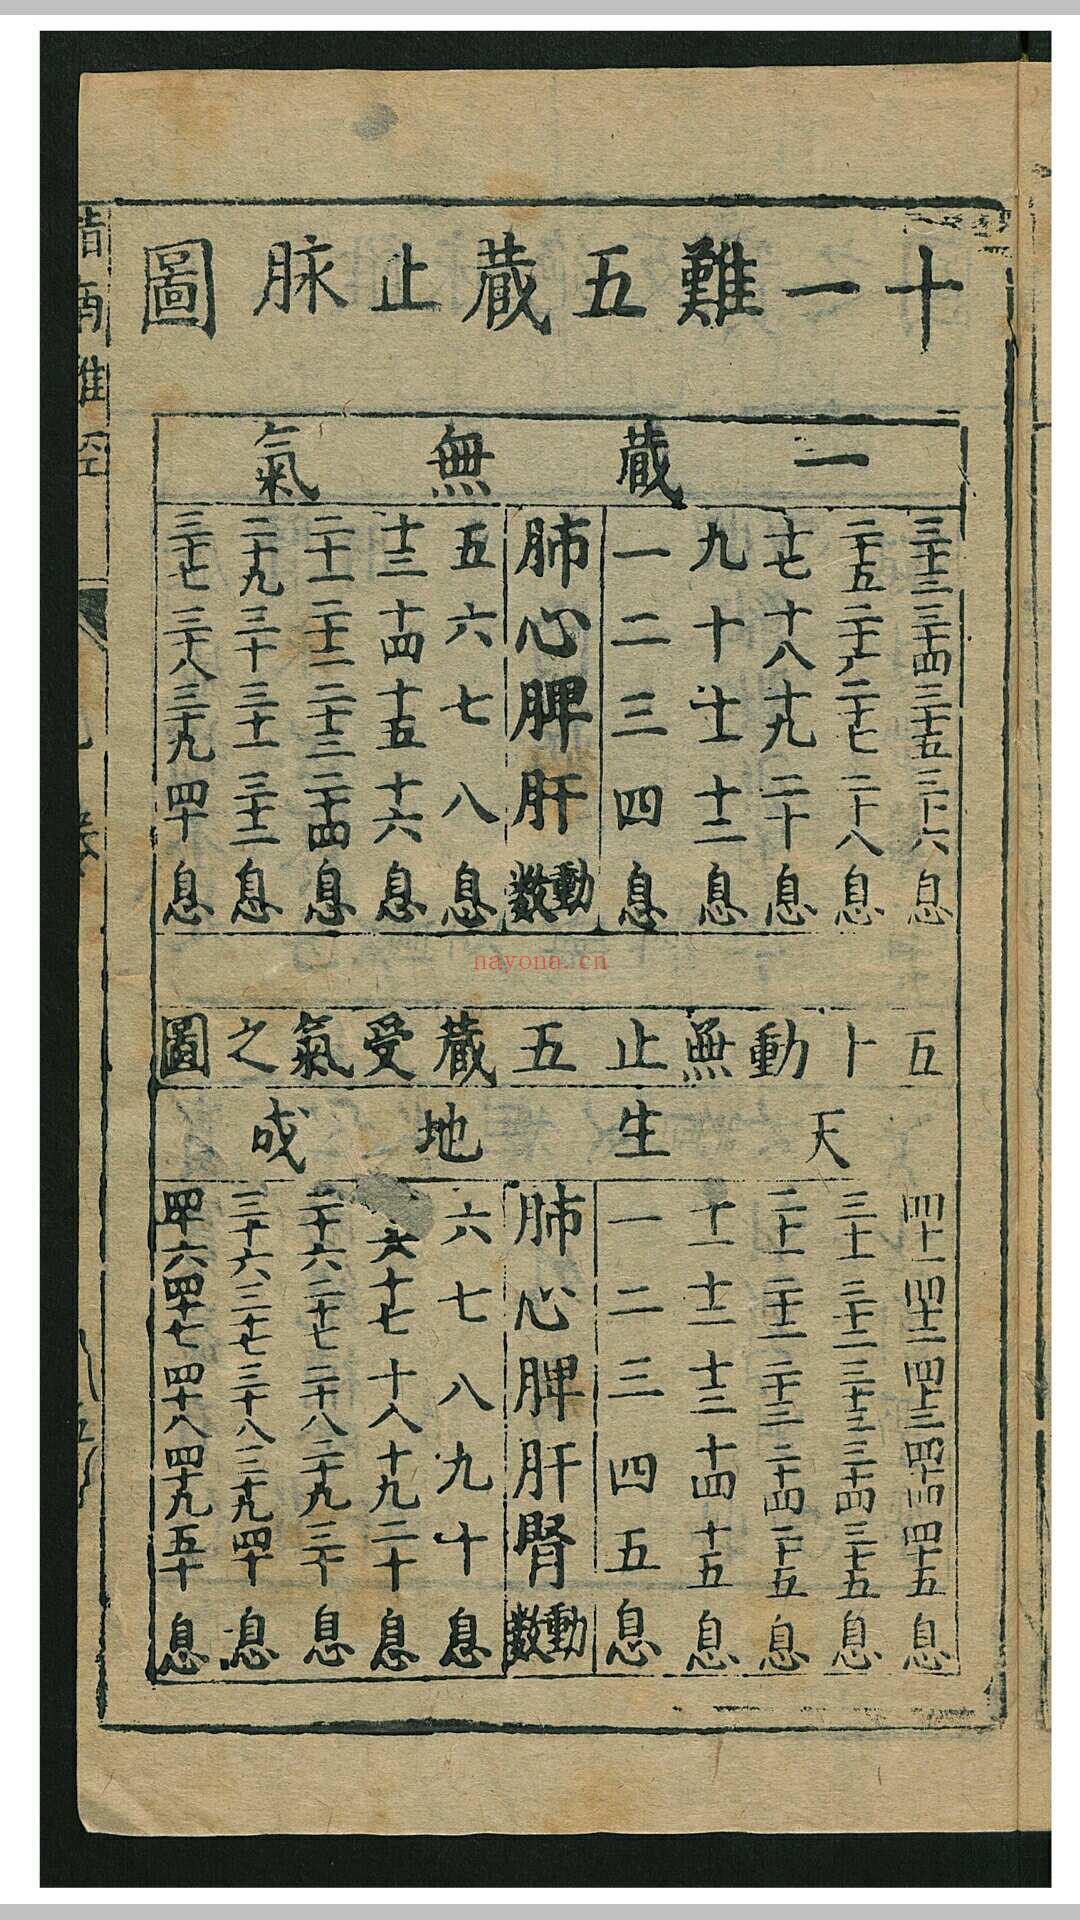 十一難五藏止脉圖
一藏無氣
三十三三十四三十五三十六息
二十五二十六二十七二十八息
十七十八十九二十息
九十十一十二息
一二三四息
肺心脾肝動數
五六七八息
十三十四十五十六息
二十一二十二二十三二十四息
二十九三十三十一三十二息
三十七三十八三十九四十息
五十動無止五藏受氣之圖
天生地成
四十一四十二四十三四十四四十五息
三十一三十二三十三三十四三十五息
二十一二十二二十三二十四二十五息
十一十二十三十四十五息
一二三四五息
肺心脾肝腎動數
六七八九十息
六十七十八十九二十息
二十六二十七二十八二十九三十息
三十六三十七三十八三十九四十息
四十六四十七四十八四十九五十息
nayona.cn